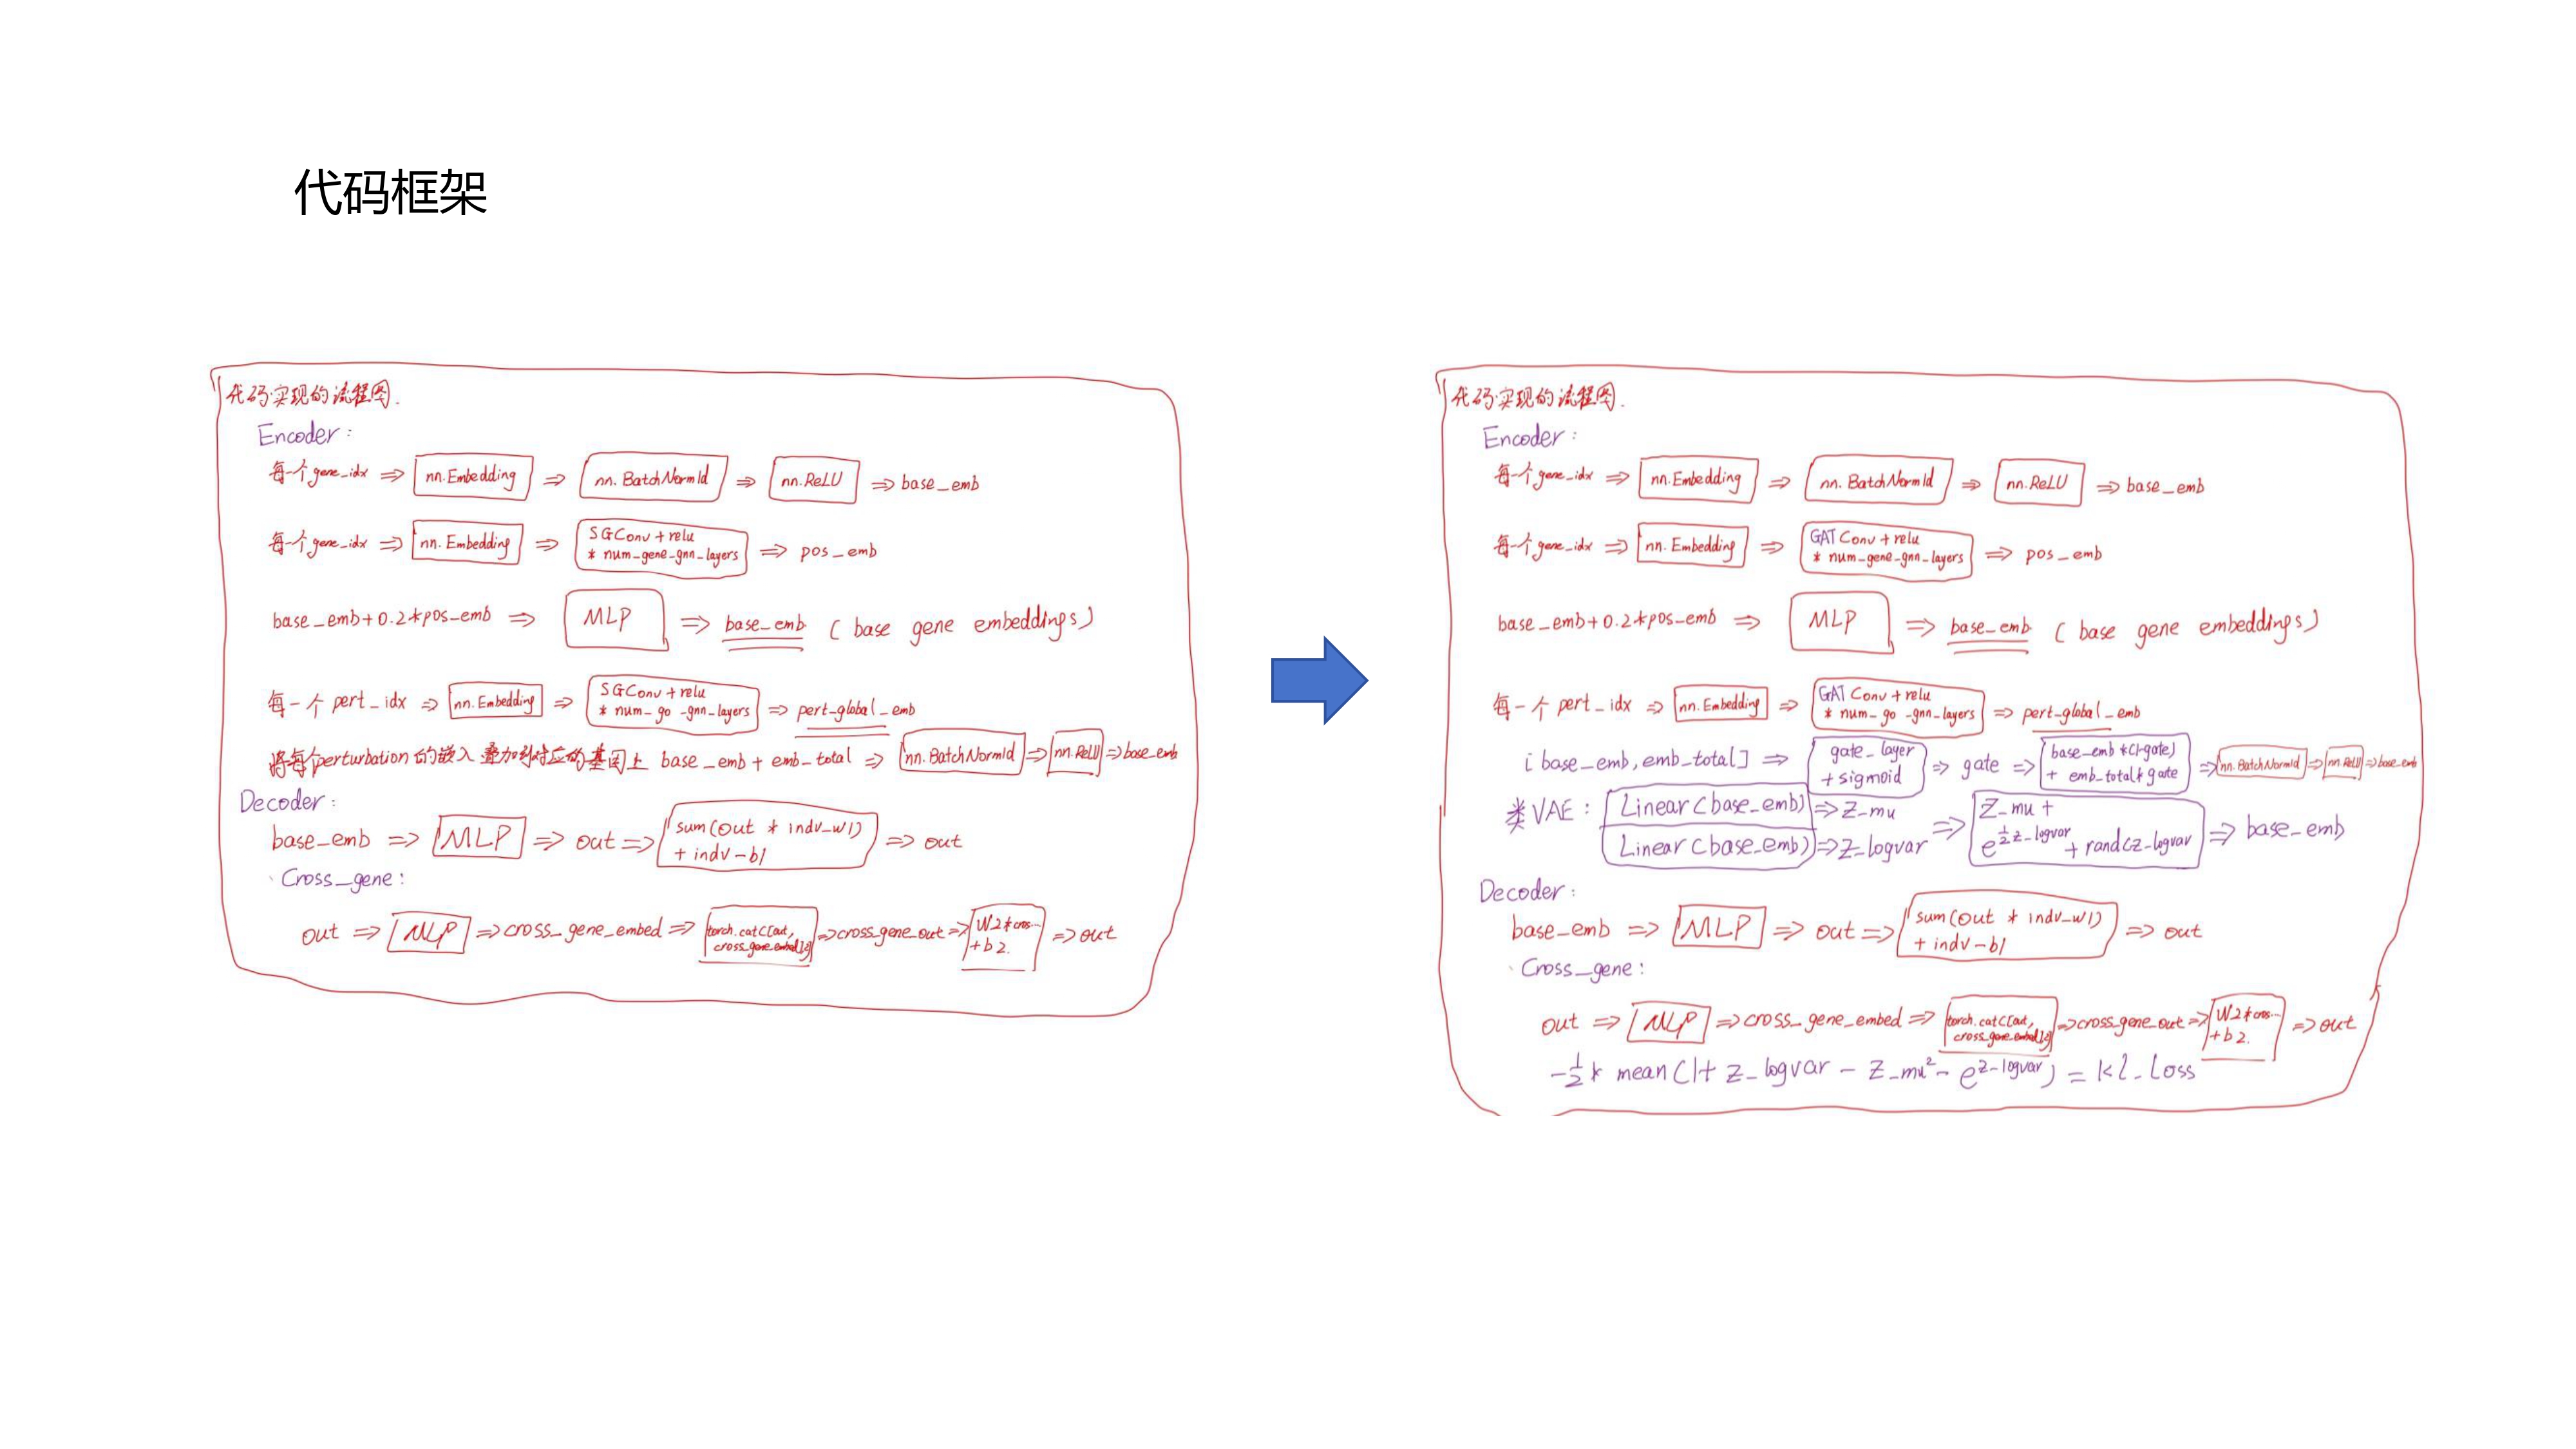 代码框架
代码实现的流程图.
Encoder:
每一个gene_idx ⇒ nn.Embedding ⇒ nn.BatchNorm1d ⇒ nn.ReLU ⇒ base_emb
每一个gene_idx ⇒ nn.Embedding ⇒ SGConv + relu * num_gene_gnn_layers ⇒ pos_emb
base_emb+0.2*pos_emb ⇒ MLP ⇒ base_emb ( base gene embeddings)
每一个 pert_idx ⇒ nn.Embedding ⇒ SGConv + relu * num_go_gnn_layers ⇒ pert_global_emb
将每个perturbation的嵌入叠加到对应的基因上 base_emb + emb_total ⇒ nn.BatchNorm1d ⇒ nn.ReLU ⇒ base_emb
Decoder:
base_emb ⇒ MLP ⇒ out ⇒ sum(out * indv_w1) + indv_b1 ⇒ out
Cross_gene:
out ⇒ MLP ⇒ cross_gene_embed ⇒ torch.cat([out, cross_gene_embed],2) ⇒ cross_gene_out ⇒ W2*cros... + b2. ⇒ out
代码实现的流程图.
Encoder:
每一个gene_idx ⇒ nn.Embedding ⇒ nn.BatchNorm1d ⇒ nn.ReLU ⇒ base_emb
每一个gene_idx ⇒ nn.Embedding ⇒ GATConv + relu * num_gene_gnn_layers ⇒ pos_emb
base_emb+0.2*pos_emb ⇒ MLP ⇒ base_emb ( base gene embeddings)
每一个 pert_idx ⇒ nn.Embedding ⇒ GATConv + relu * num_go_gnn_layers ⇒ pert_global_emb
[base_emb, emb_total] ⇒ gate_layer + sigmoid ⇒ gate ⇒ base_emb *(1-gate) + emb_total* gate ⇒ nn.BatchNorm1d ⇒ nn.ReLU ⇒ base_emb
类VAE: Linear(base_emb) ⇒ Z_mu
Linear(base_emb) ⇒ Z_logvar ⇒ Z_mu + e^{½z_logvar} + rand(z_logvar ⇒ base_emb
Decoder:
base_emb ⇒ MLP ⇒ out ⇒ sum(out * indv_w1) + indv_b1 ⇒ out
Cross_gene:
out ⇒ MLP ⇒ cross_gene_embed ⇒ torch.cat([out, cross_gene_embed],2) ⇒ cross_gene_out ⇒ W2*cros... + b2. ⇒ out
-½* mean(1+ z_logvar - z_mu² - e^{z_logvar}) = kl_loss